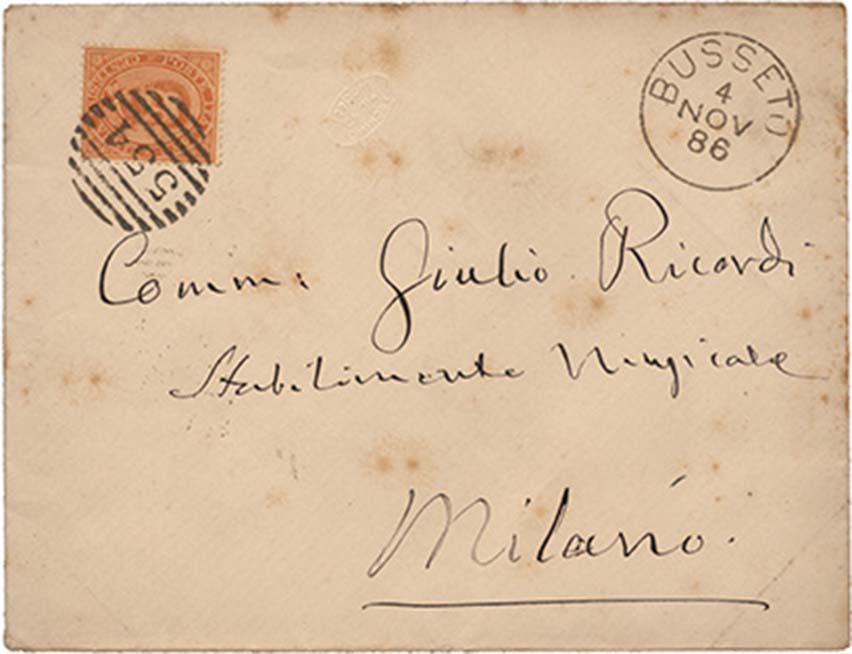 BUSSETO
4
NOV
86
Comm: Giulio Ricordi
Stabilimento Musicale
Milano.